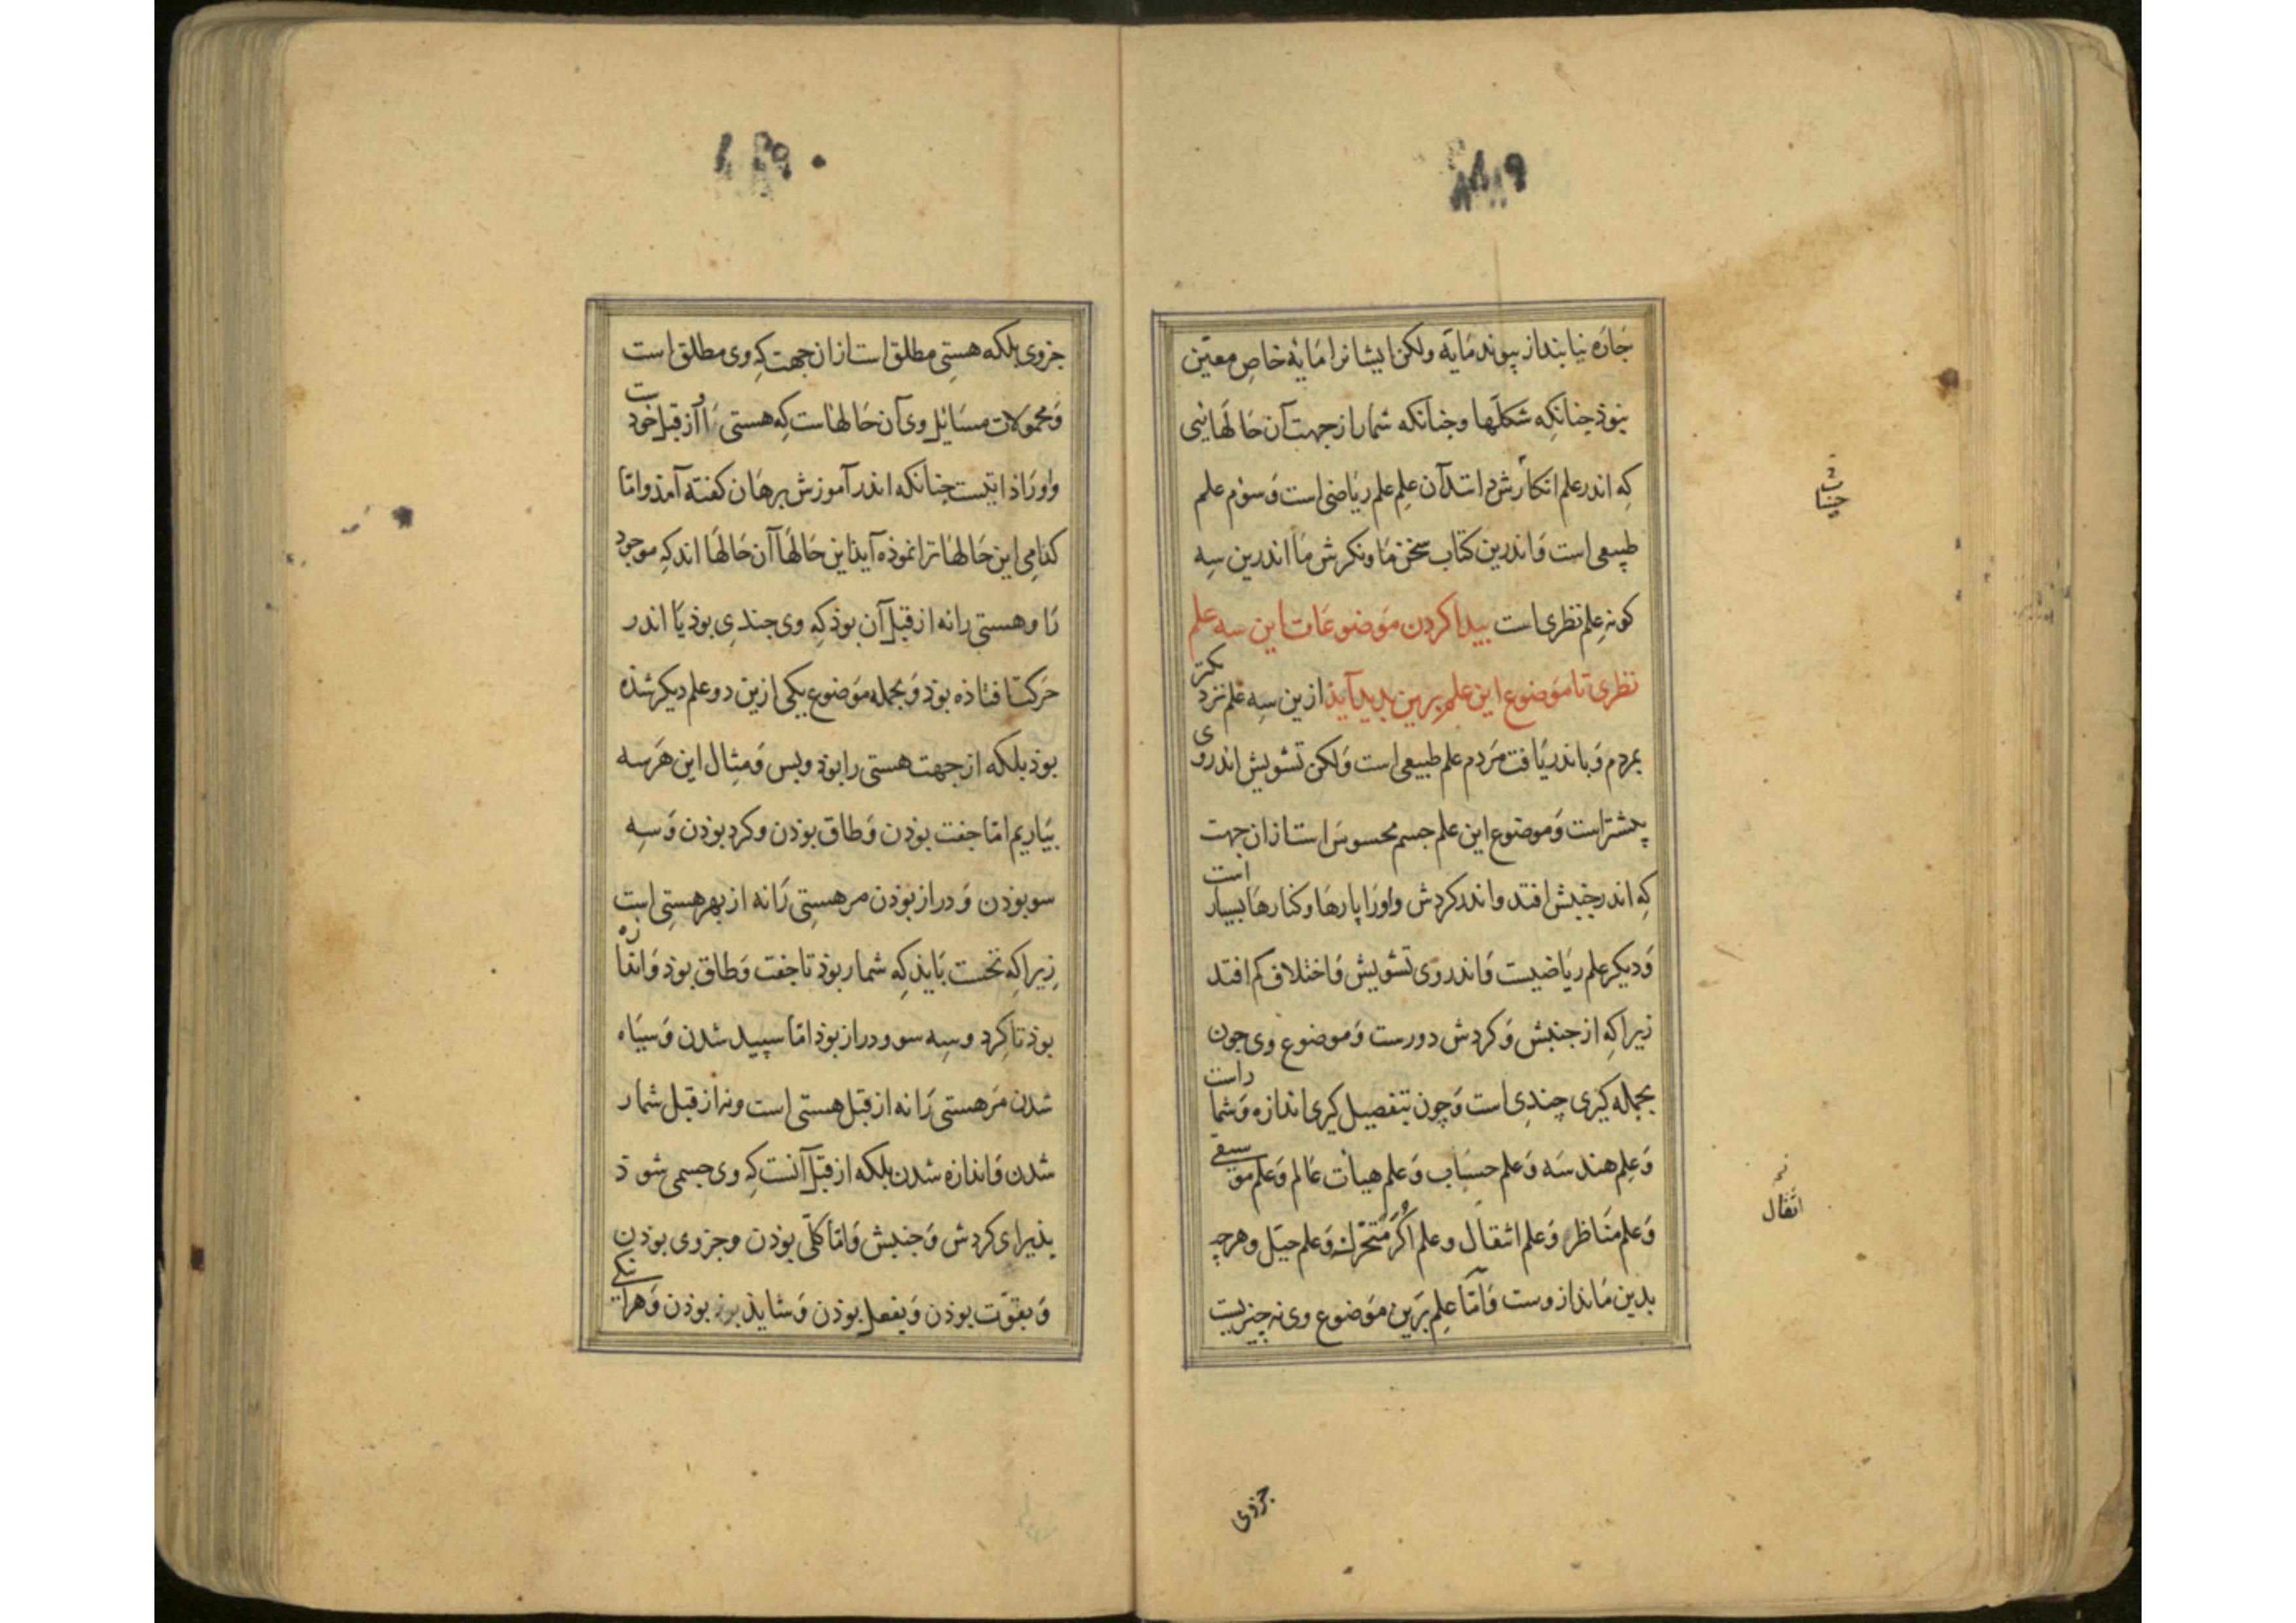 جاره نیابند از پیوند مایه ولکن ایشانرا مایهٔ خاصِ معیّن
نبوذ جنانکه شکلها وجنانکه شمار از جهت آن حالهائی
که اندر علم انکارش دانند آن علم علم ریاضی است وسوم علم
طبیعی است واندرین کتاب سخن ما ونکرش ما اندرین سه
کونه علم نظری است پیدا کردن موضوعات این سه علم
نظری تا موضوع این علم برین بدید آید ازین سه علم نزدیکتر
بمردم وباندریافت مردم علم طبیعی است ولکن تشویش اندروی
بیشتر است وموضوع این علم جسم محسوس است ازان جهت
که اندر جنبش افتد واندر کردش واورا پارها وکنارها بسیار است
ودیکر علم ریاضیست واندروی تشویش واختلاف کم افتد
زیرا که از جنبش وکردش دورست وموضوع وی جون
بجمله کیری چندی است وچون بتفصیل کیری اندازه وشماراست
وعلم هندسه وعلم حساب وعلم هیات عالم وعلم موسیقی
وعلم مناظر وعلم اثقال وعلم اکر متحرکه وعلم حیل وهرچه
بدین ماند ازوست وامّا علم برین موضوع وی نه چیزیست
اثقال
جزوی
جزوی بلکه هستی مطلق است ازان جهت که وی مطلق است
ومحمولات مسائل وی آن حالهاست که هستی را از قبل خود
واورا ذاتیست چنانکه اندر آموزش برهان کفته آمذ وامّا
کذامی این حالها ترا نموذه آیذ این حالها آن حالها اند که موجود
را وهستی را نه از قبل آن بوذ که وی چندی بوذ یا اندر
حرکت افتاذه بوذ وبجمله موضوع یکی ازین دو علم دیکر شذه
بوذ بلکه از جهت هستی را بوذ وبس ومثال این هر سه
بیاریم امّا جفت بوذن وطاق بوذن وکرد بوذن وسه
سو بوذن ودراز بوذن مر هستی را نه از بهر هستی است
زیرا که نخست بایذ که شمار بوذ تا جفت وطاق بوذ واندازه
بوذ تا کرد وسه سو ودراز بوذ امّا سپید شدن وسیاه
شدن مر هستی را نه از قبل هستی است ونه از قبل شمار
شدن واندازه شدن بلکه از قبل آنست که وی جسمی شوذ
پذیرای کردش وجنبش وامّا کلّی بوذن وجزوی بوذن
وبقوّت بوذن وبفعل بوذن وشایذ بوذ بوذن وهرآینکی